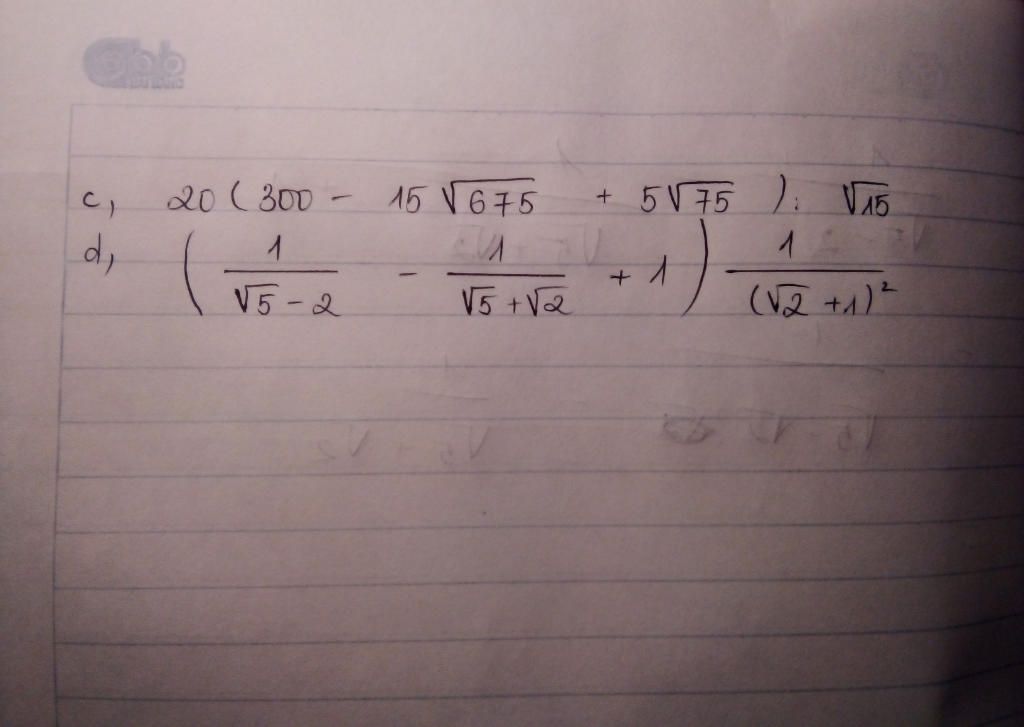 c, 20 ( 300 - 15 √675 + 5√75 ) : √15
d, ( 1/(√5 - 2) - 1/(√5 + √2) + 1 ) 1/(√2 + 1)²